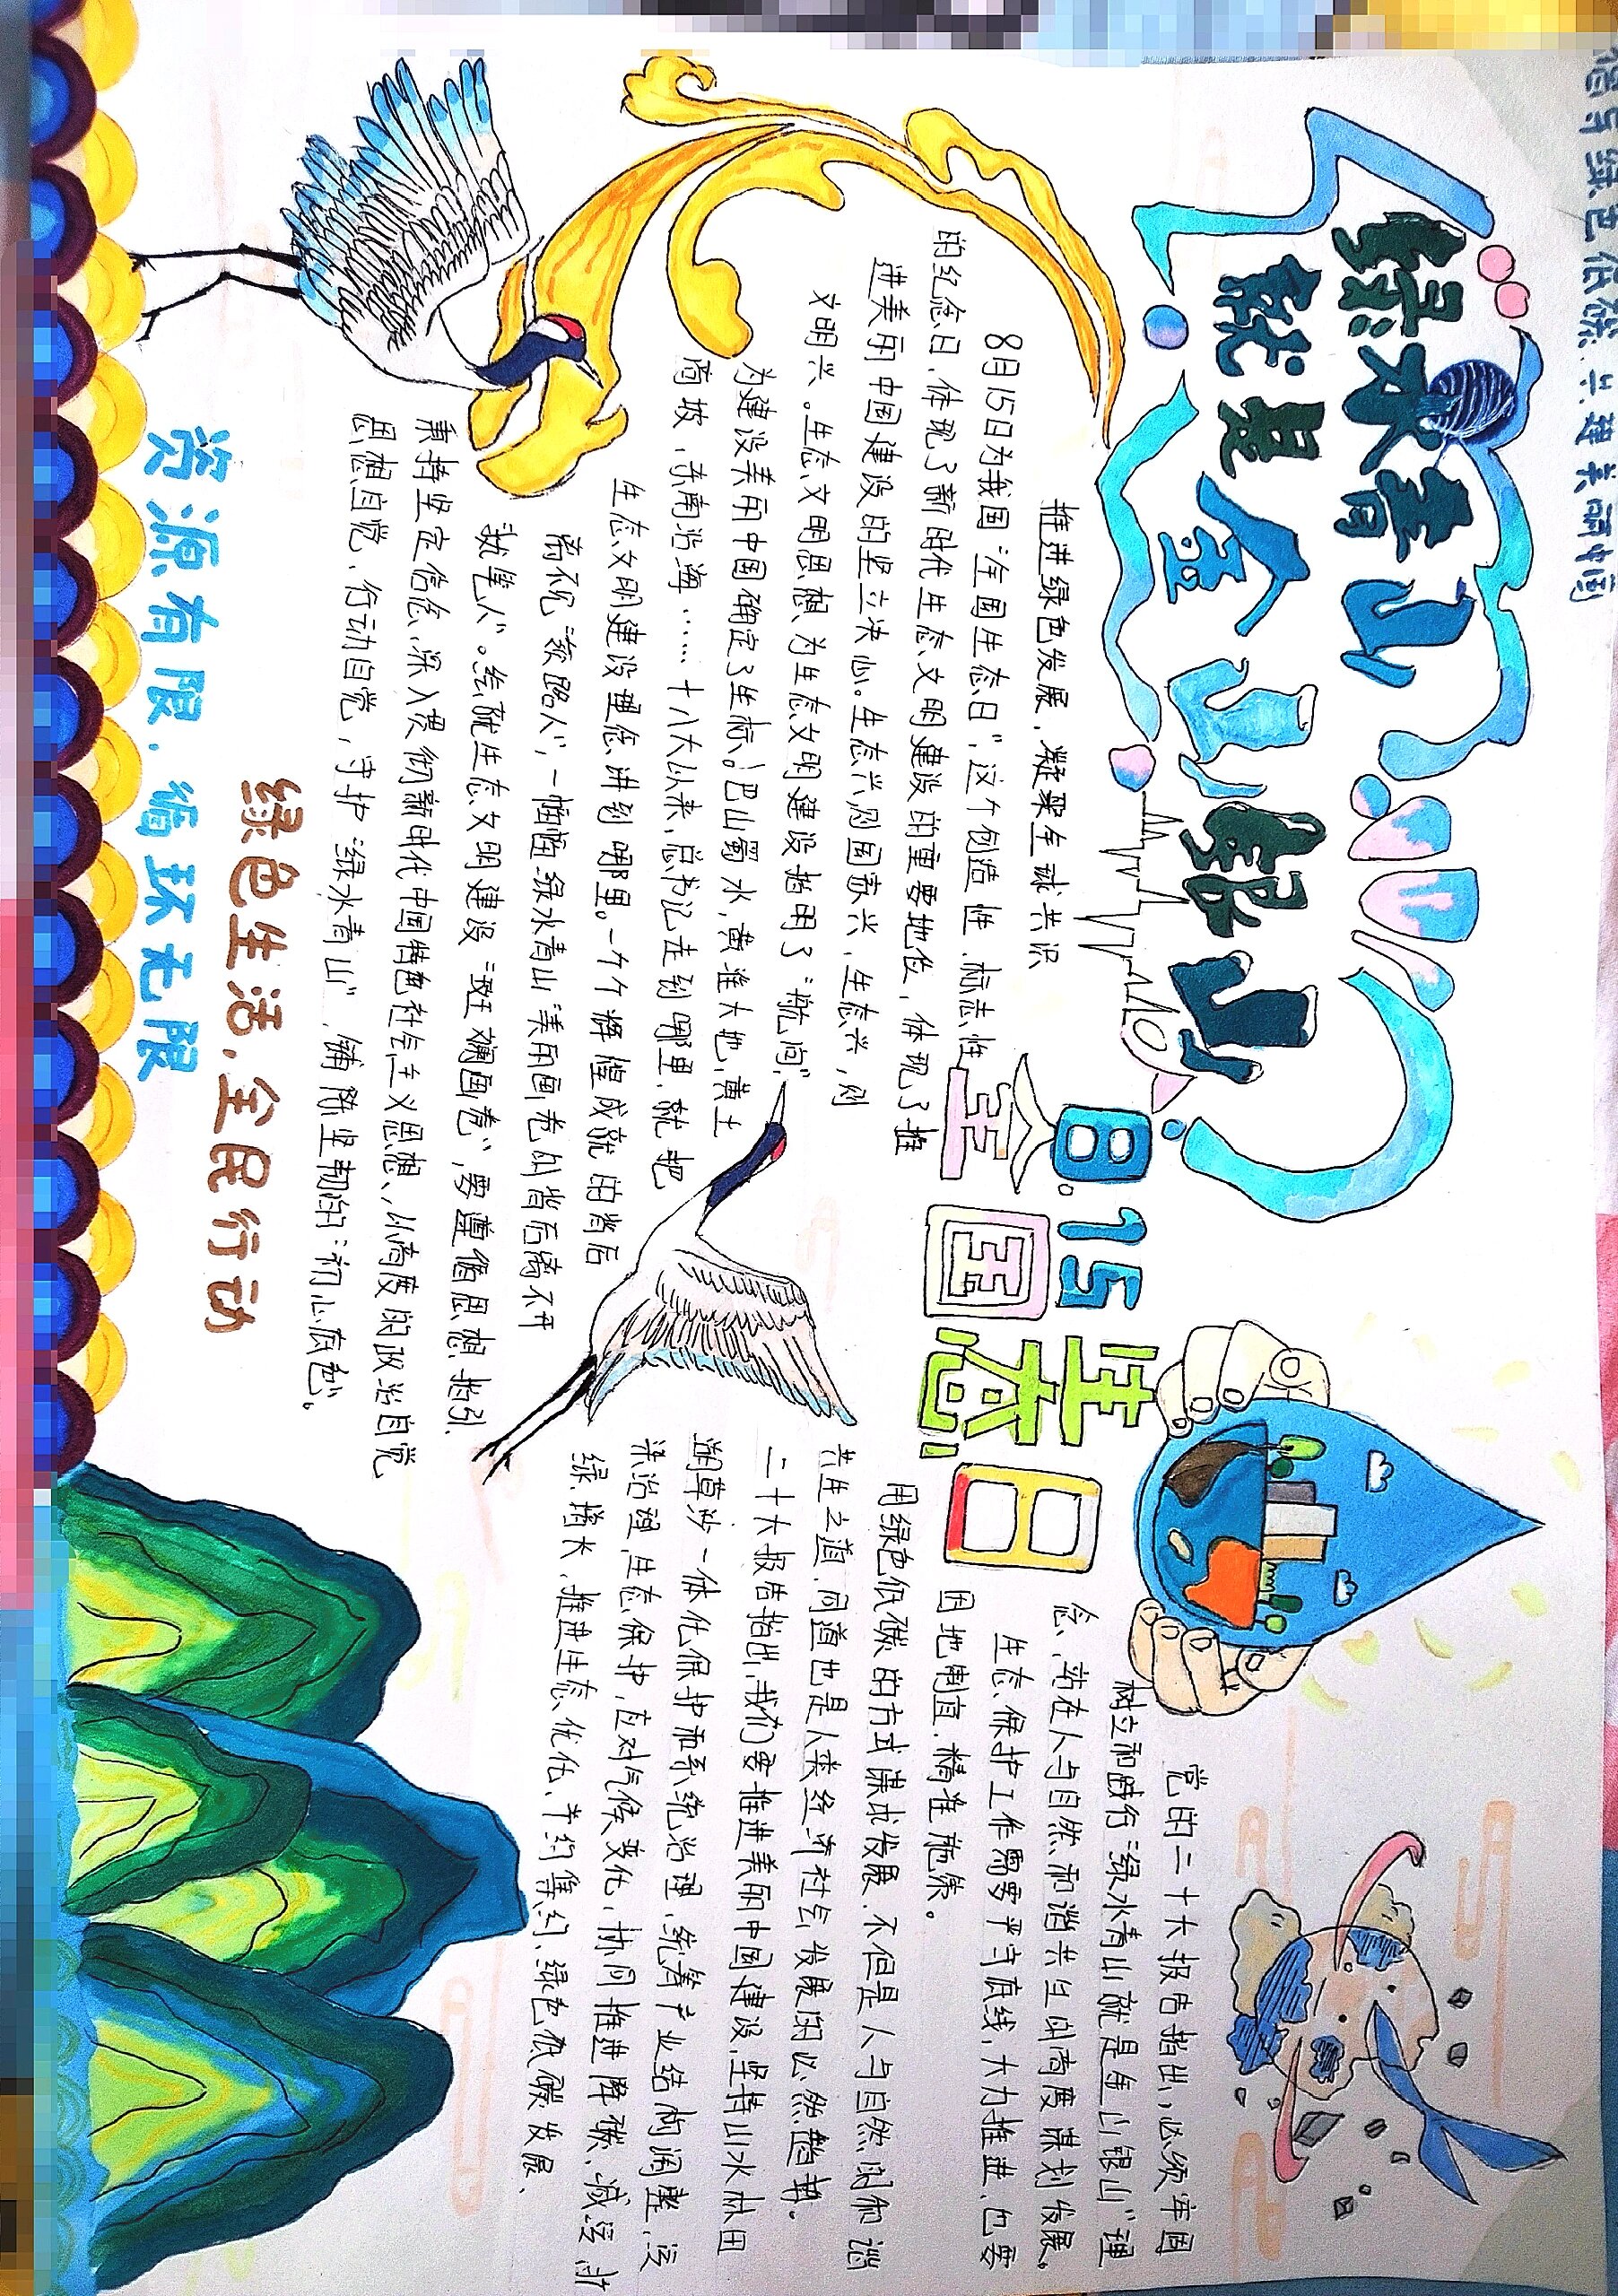 倡导绿色低碳.共建美丽中国
绿水青山
就是金山银山
8.15
全国生态日
推进绿色发展，凝聚全球共识
8月15日为我国“全国生态日”，这个创造性、标志性
的纪念日、体现了新时代生态文明建设的重要地位，体现了推
进美丽中国建设的坚立决心。生态兴则国家兴，生态兴，则
文明兴。生态文明思想、为生态文明建设指明了“航向”
为建设美丽中国确定了坐标。巴山蜀水，黄淮大地，黄土
高坡、东南沿海……十八大以来，总书记走到哪里，就把
生态文明建设理念讲到哪里。一个个辉煌成就的背后
离不开“领路人”，一幅幅绿水青山“美丽画卷的背后离不开
“执笔人”。绘就生态文明建设“斑斓画卷”，要遵循思想指引、
秉持坚定信念、深入贯彻新时代中国特色社会主义思想、以高度的政治自觉
思想自觉、行动自觉，守护“绿水青山”，铺陈坚韧的“初心底色”。
党的二十大报告指出，必须牢固
树立和践行“绿水青山就是金山银山”理
念、站在人与自然和谐共生的高度谋划发展。
生态保护工作需要严守底线，大力推进、也要
因地制宜.精准施策。
用绿色低碳的方式谋求发展、不但是人与自然的和谐
共生之道，同道也是人类经济社会发展的必然趋势。
二十大报告指出，我们要推进美丽中国建设，坚持山水林田
湖草沙一体化保护和系统治理，统筹产业结构调整、污
染治理、生态保护，应对气候变化，协同推进降碳、减污、扩
绿、增长，推进生态优化、节约集约、绿色低碳发展、
绿色生活，全民行动
资源有限，循环无限